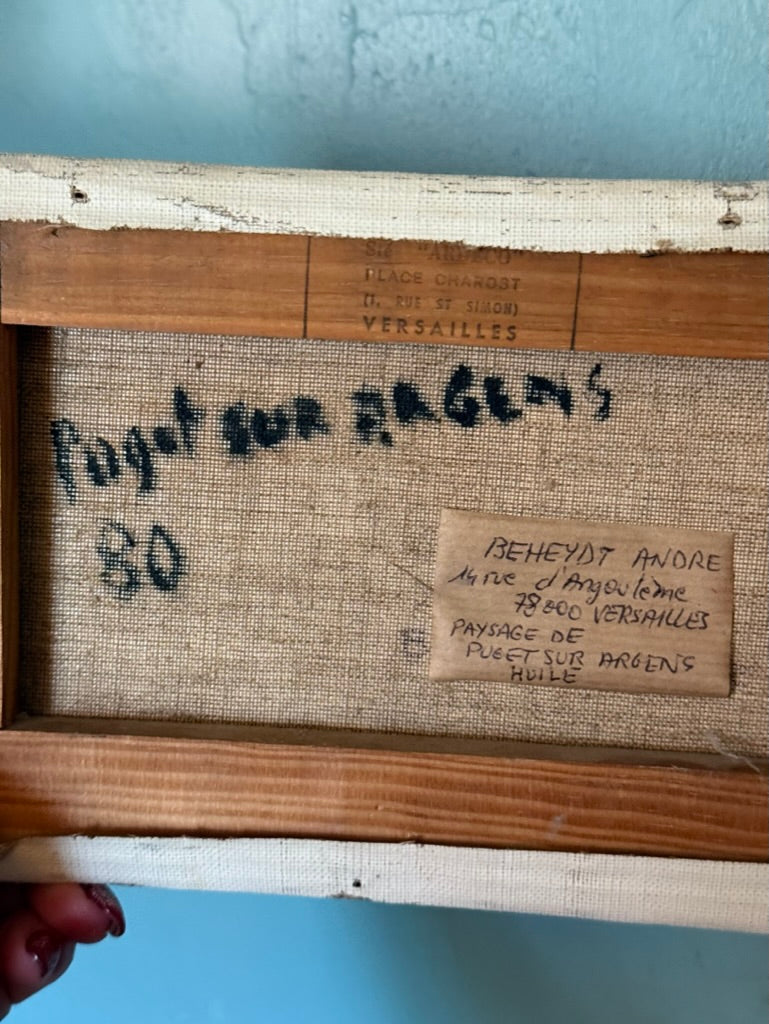 Sté "ARDECO"
PLACE CHAROST
(1, RUE ST SIMON)
VERSAILLES
Puget SUR ARGENS
80
BEHEYDT ANDRE
14 rue d'Angoulême
78000 VERSAILLES
PAYSAGE DE
PUGET SUR ARGENS
HUILE